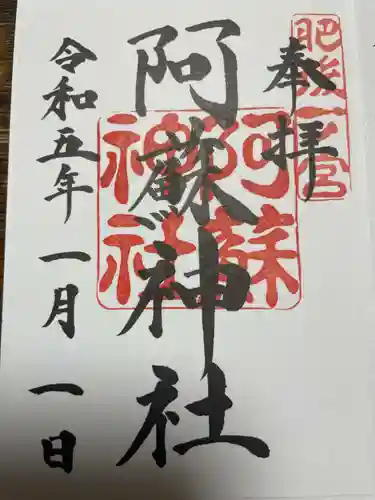 奉拝
肥後一ノ宮
阿蘇神社
阿蘇神社
令和五年一月一日